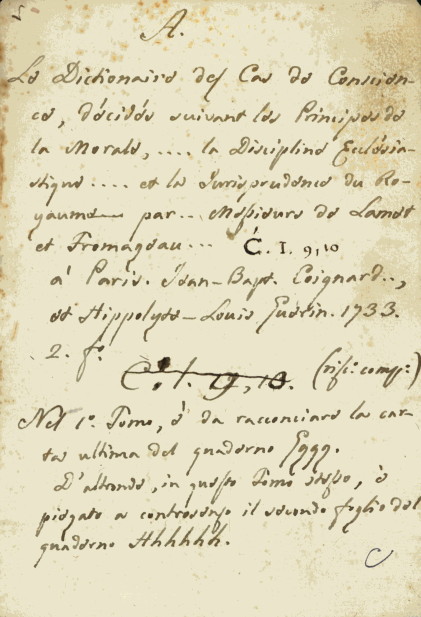 A.
Le Dictionaire des Cas de Conscien-
ce, décidés suivant les Principes de
la Morale, .... la Discipline Ecclésia-
stique .... et la Jurisprudence du Ro-
yaume par .. Messieurs de Lamet
et Fromageau ... C. I. 9, 10
à Paris. Jean-Bapt. Coignard ..,
et Hippolyte-Louis Guerin. 1733.
2. f.°
C. I. 19, 10. (rifi: comp:)
Nel 1.° Tomo, è da racconciare la car-
ta ultima del quaderno Eggg.
D'altronde, in questo Tomo stesso, è
piegato a controsenso il secondo foglio del
quaderno Hhhhhh.